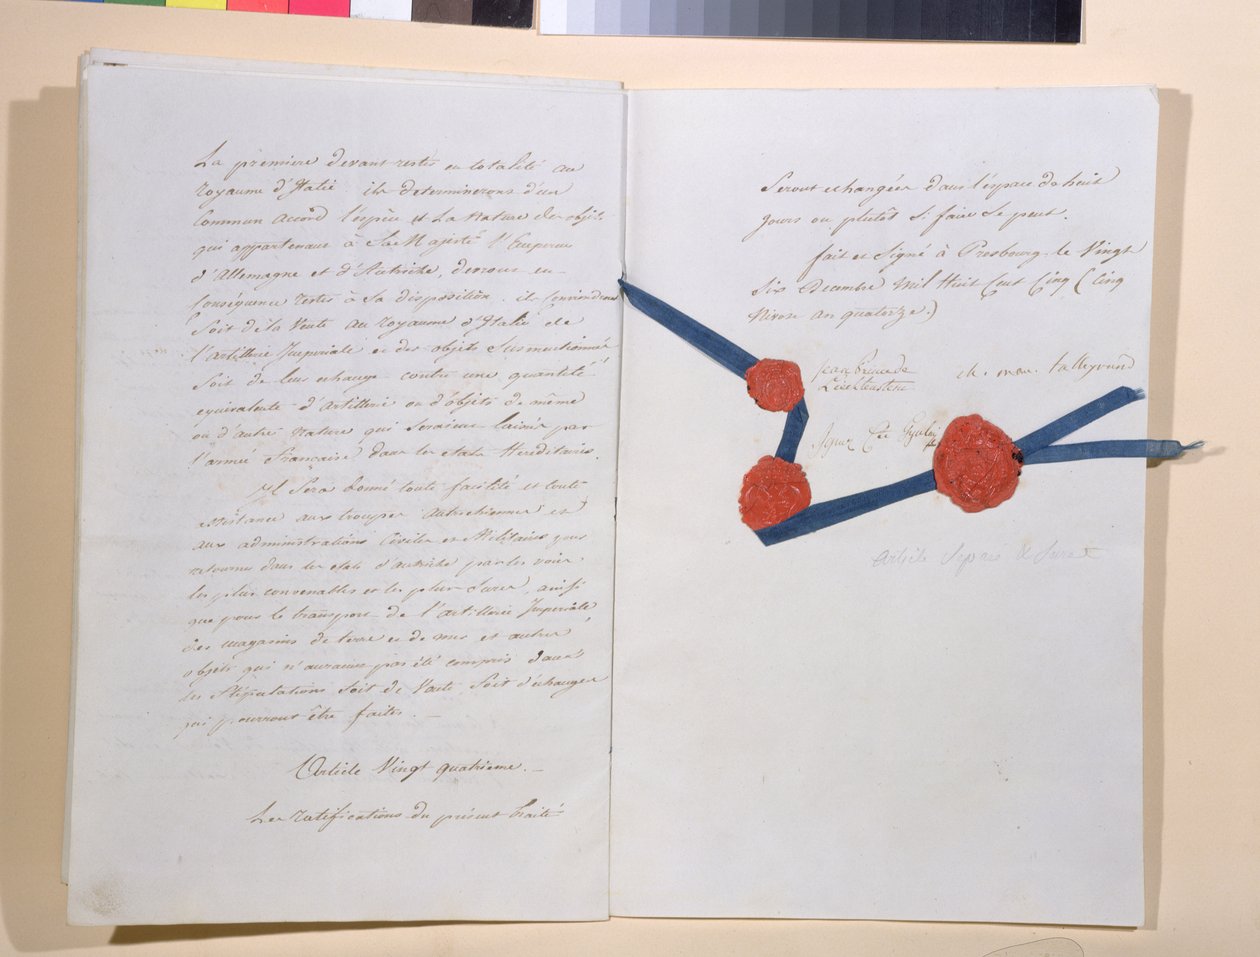 La premiere devant rester en totalité au
royaume d'Italie ils determinerons d'un
Commun accord l'espèce et La Nature des objets
qui appartenant à Sa Majesté l'Empereur
d'Allemagne et d'Autriche, devront en
Conséquence rester à Sa disposition. ils conviendront
Soit de la Vente au royaume d'Italie de
l'artillerie Imperiale et des objets Susmentionnés
Soit de leur echange contre une quantité
équivalente d'artillerie ou d'objets de même
ou d'autre Nature qui Seraient laissés par
l'armée française dans les etats Héréditaires.
Il Sera donné toute facilité et toute
assistance aux troupes autrichiennes et
aux administrations Civiles et Militaires pour
retourner dans les etats d'autriche par les voies
les plus convenables et les plus Sures, ainsi
que pour le transport de l'artillerie Imperiale
des magasins de terre et de mer et autres
objets qui n'auraient pas été compris dans
les Stipulations Soit de Vente, Soit d'échange
qui pourront être faites. —
Article Vingt quatrieme. —
Les ratifications du présent traité
Seront echangées dans l'espace de huit
Jours ou plutôt Si faire Se peut.
fait et Signé à Presbourg le Vingt
Six Decembre Mil Huit Cent Cinq (Cinq
Nivose an quatorze.)
Jean Prince de
Liechtenstein
ch. mau. talleyrand
Ignaz Cte Gyulai
Article Séparé & Secret